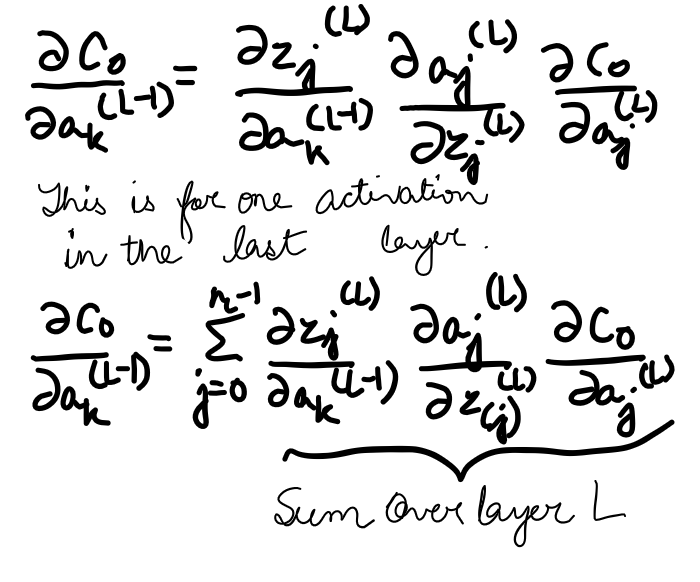 ∂C₀/∂aₖ^(L-1) = ∂zⱼ^(L)/∂aₖ^(L-1) ∂aⱼ^(L)/∂zⱼ^(L) ∂C₀/∂aⱼ^(L)
This is for one activation
in the last layer.
∂C₀/∂aₖ^(L-1) = ∑_{j=0}^{n_L-1} ∂zⱼ^(L)/∂aₖ^(L-1) ∂aⱼ^(L)/∂z_(j)^(L) ∂C₀/∂aⱼ^(L)
Sum over layer L